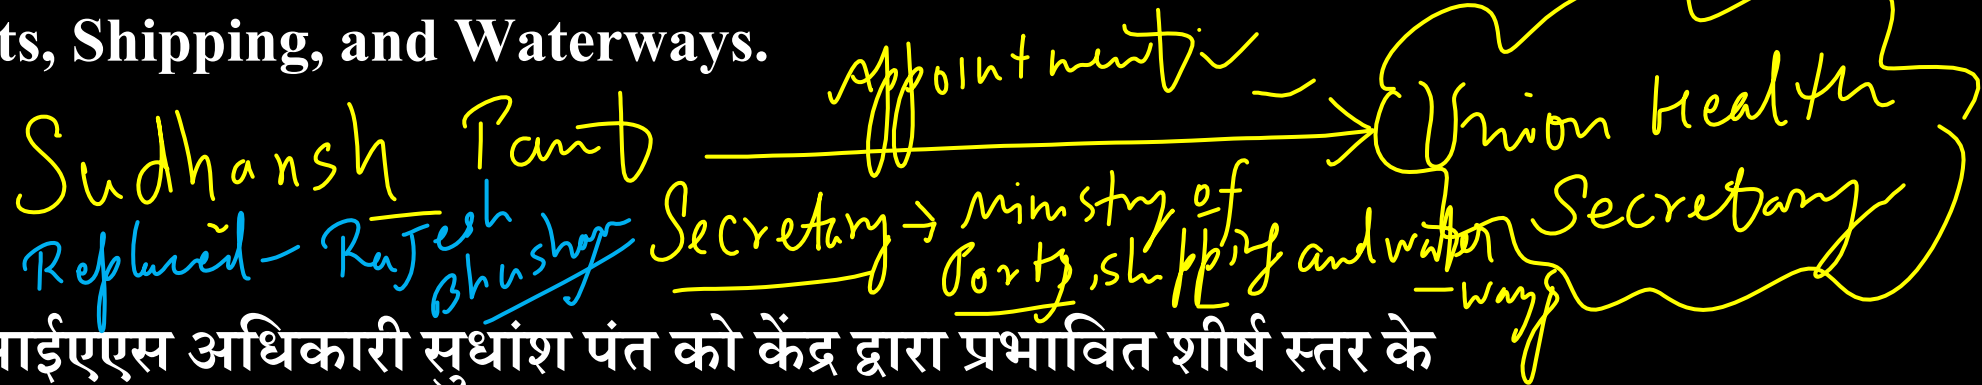 ts, Shipping, and Waterways.
Appointment
Sudhansh Pant → Union Health Secretary
Replaced - Rajesh Bhushan
Secretary → Ministry of Ports, shipping and water-ways
ाईएएस अधिकारी सुधांश पंत को केंद्र द्वारा प्रभावित शीर्ष स्तर के